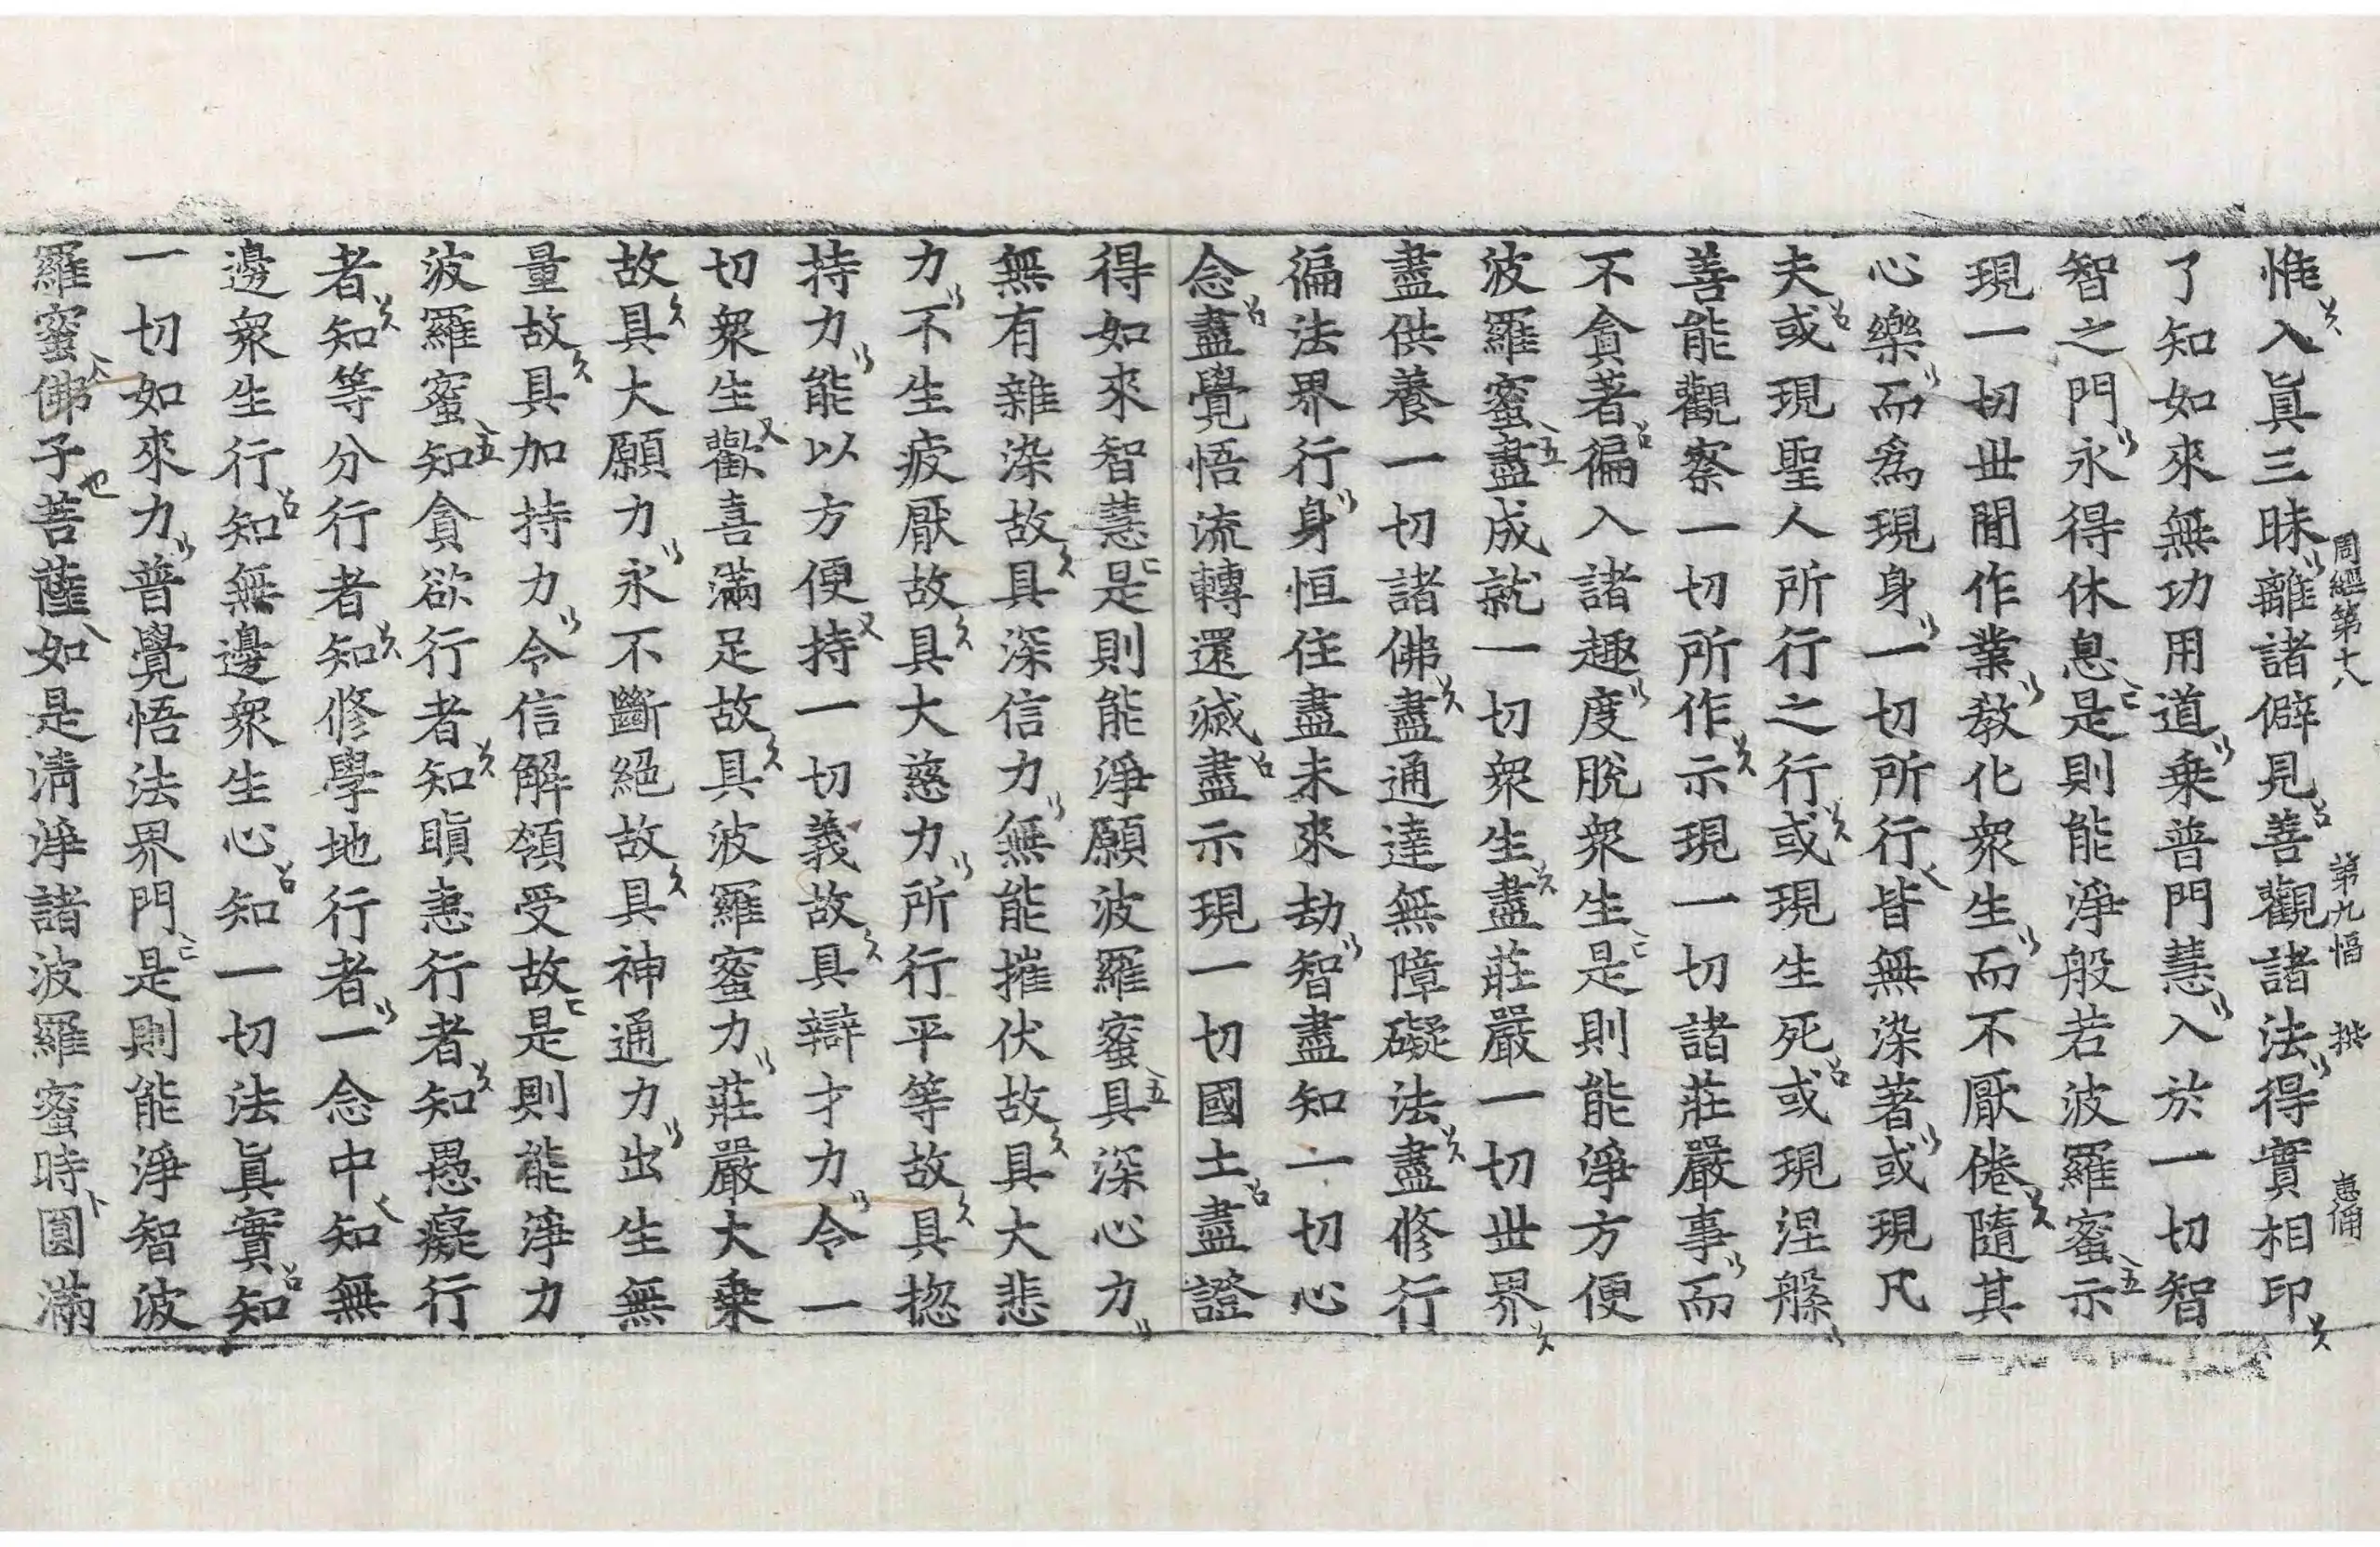 周經第十八 第九幅
惟入眞三昧離諸僻見善觀諸法得實相印
了知如來無功用道乗普門慧入於一切智
智之門永得休息是則能淨般若波羅蜜示
現一切世閒作業教化衆生而不厭倦隨其
心樂而爲現身一切所行皆無染著或現凡
夫或現聖人所行之行或現生死或現涅槃
善能觀察一切所作示現一切諸莊嚴事而
不貪著徧入諸趣度脫衆生是則能淨方便
波羅蜜盡成就一切衆生盡莊嚴一切世界
盡供養一切諸佛盡通達無障礙法盡修行
徧法界行身恒住盡未來劫智盡知一切心
念盡覺悟流轉還滅盡示現一切國土盡證
得如來智慧是則能淨願波羅蜜具深心力
無有雜染故具深信力無能摧伏故具大悲
力不生疲厭故具大慈力所行平等故具揔
持力能以方便持一切義故具辯才力令一
切衆生歡喜滿足故具波羅蜜力莊嚴大乗
故具大願力永不斷絕故具神通力出生無
量故具加持力令信解領受故是則能淨力
波羅蜜知貪欲行者知瞋恚行者知愚癡行
者知等分行者知修學地行者一念中知無
邊衆生行知無邊衆生心知一切法眞實知
一切如來力普覺悟法界門是則能淨智波
羅蜜佛子菩薩如是淸淨諸波羅蜜時圓滿